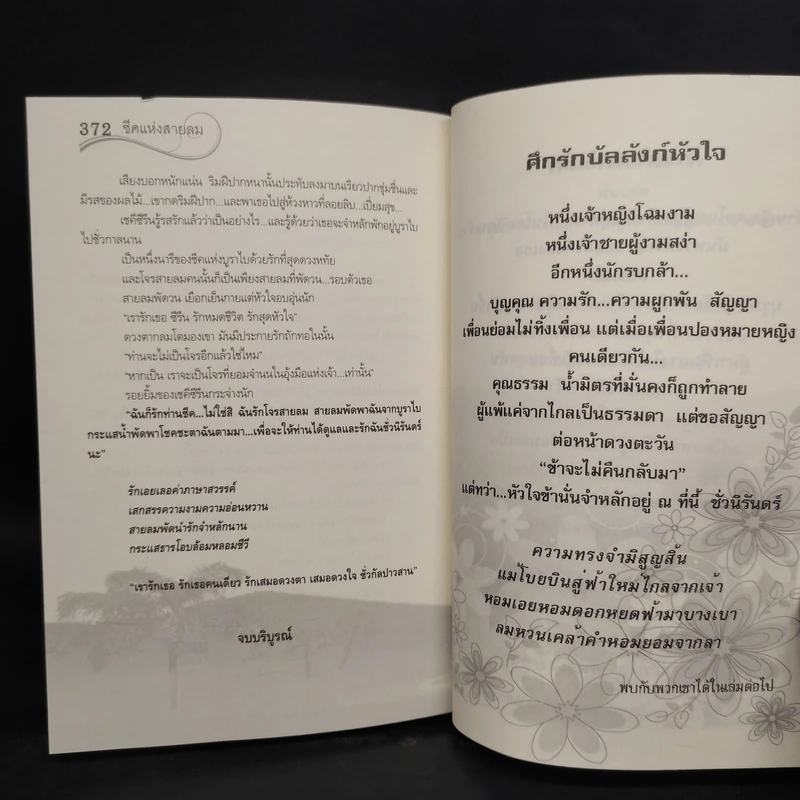 372 ชีคแห่งสายลม
เสียงบอกหนักแน่น ริมฝีปากหนานั้นประทับลงมาบนเรียวปากชุ่มชื่นและ
มีรสของผลไม้...เขากดริมฝีปาก...และพาเธอไปสู่ห้วงหาวที่ลอยลิบ...เปี่ยมสุข...
เชคีซีรีนรู้รสรักแล้วว่าเป็นอย่างไร...และรู้ด้วยว่าเธอจะจำหลักพักอยู่บูราไบ
ไปชั่วกาลนาน
เป็นหนึ่งนารีของชีคแห่งบูราไบด้วยรักที่สุดดวงหทัย
และโจรสายลมคนนั้นก็เป็นเพียงสายลมที่พัดวน...รอบตัวเธอ
สายลมพัดวน เยือกเย็นกายแต่หัวใจอบอุ่นนัก
“เรารักเธอ ซีรีน รักหมดชีวิต รักสุดหัวใจ”
ดวงตากลมโตมองเขา มันมีประกายรักถักทอในนั้น
“ท่านจะไม่เป็นโจรอีกแล้วใช่ไหม”
“หากเป็น เราจะเป็นโจรที่ยอมจำนนในอุ้งมือแห่งเจ้า...เท่านั้น”
รอยยิ้มของเชคีซีรีนกระจ่างนัก
“ฉันก็รักท่านชีค...ไม่ใช่สิ ฉันรักโจรสายลม สายลมพัดพาฉันจากบูราไบ
กระแสน้ำพัดพาโชคชะตาฉันตามมา...เพื่อจะให้ท่านได้ดูแลและรักฉันชั่วนิรันดร์
นะ”
รักเอยเลอค่าภาษาสวรรค์
เสกสรรความงามความอ่อนหวาน
สายลมพัดนำรักจำหลักนาน
กระแสธารโอบล้อมหลอมชีวี
“เรารักเธอ รักเธอคนเดียว รักเสมอดวงตา เสมอดวงใจ ชั่วกัลปาวสาน”
จบบริบูรณ์
ศึกรักบัลลังก์หัวใจ
หนึ่งเจ้าหญิงโฉมงาม
หนึ่งเจ้าชายผู้งามสง่า
อีกหนึ่งนักรบกล้า...
บุญคุณ ความรัก...ความผูกพัน สัญญา
เพื่อนย่อมไม่ทิ้งเพื่อน แต่เมื่อเพื่อนปองหมายหญิง
คนเดียวกัน...
คุณธรรม น้ำมิตรที่มั่นคงก็ถูกทำลาย
ผู้แพ้แค่จากไกลเป็นธรรมดา แต่ขอสัญญา
ต่อหน้าดวงตะวัน
“ข้าจะไม่คืนกลับมา”
แต่ทว่า...หัวใจข้านั่นจำหลักอยู่ ณ ที่นี้ ชั่วนิรันดร์
ความทรงจำมิสูญสิ้น
แม้โบยบินสู่ฟ้าใหม่ไกลจากเจ้า
หอมเอยหอมดอกหยดฟ้ามาบางเบา
ลมหวนเคล้าคำหอมยอมจากลา
พบกับพวกเขาได้ในเล่มต่อไป